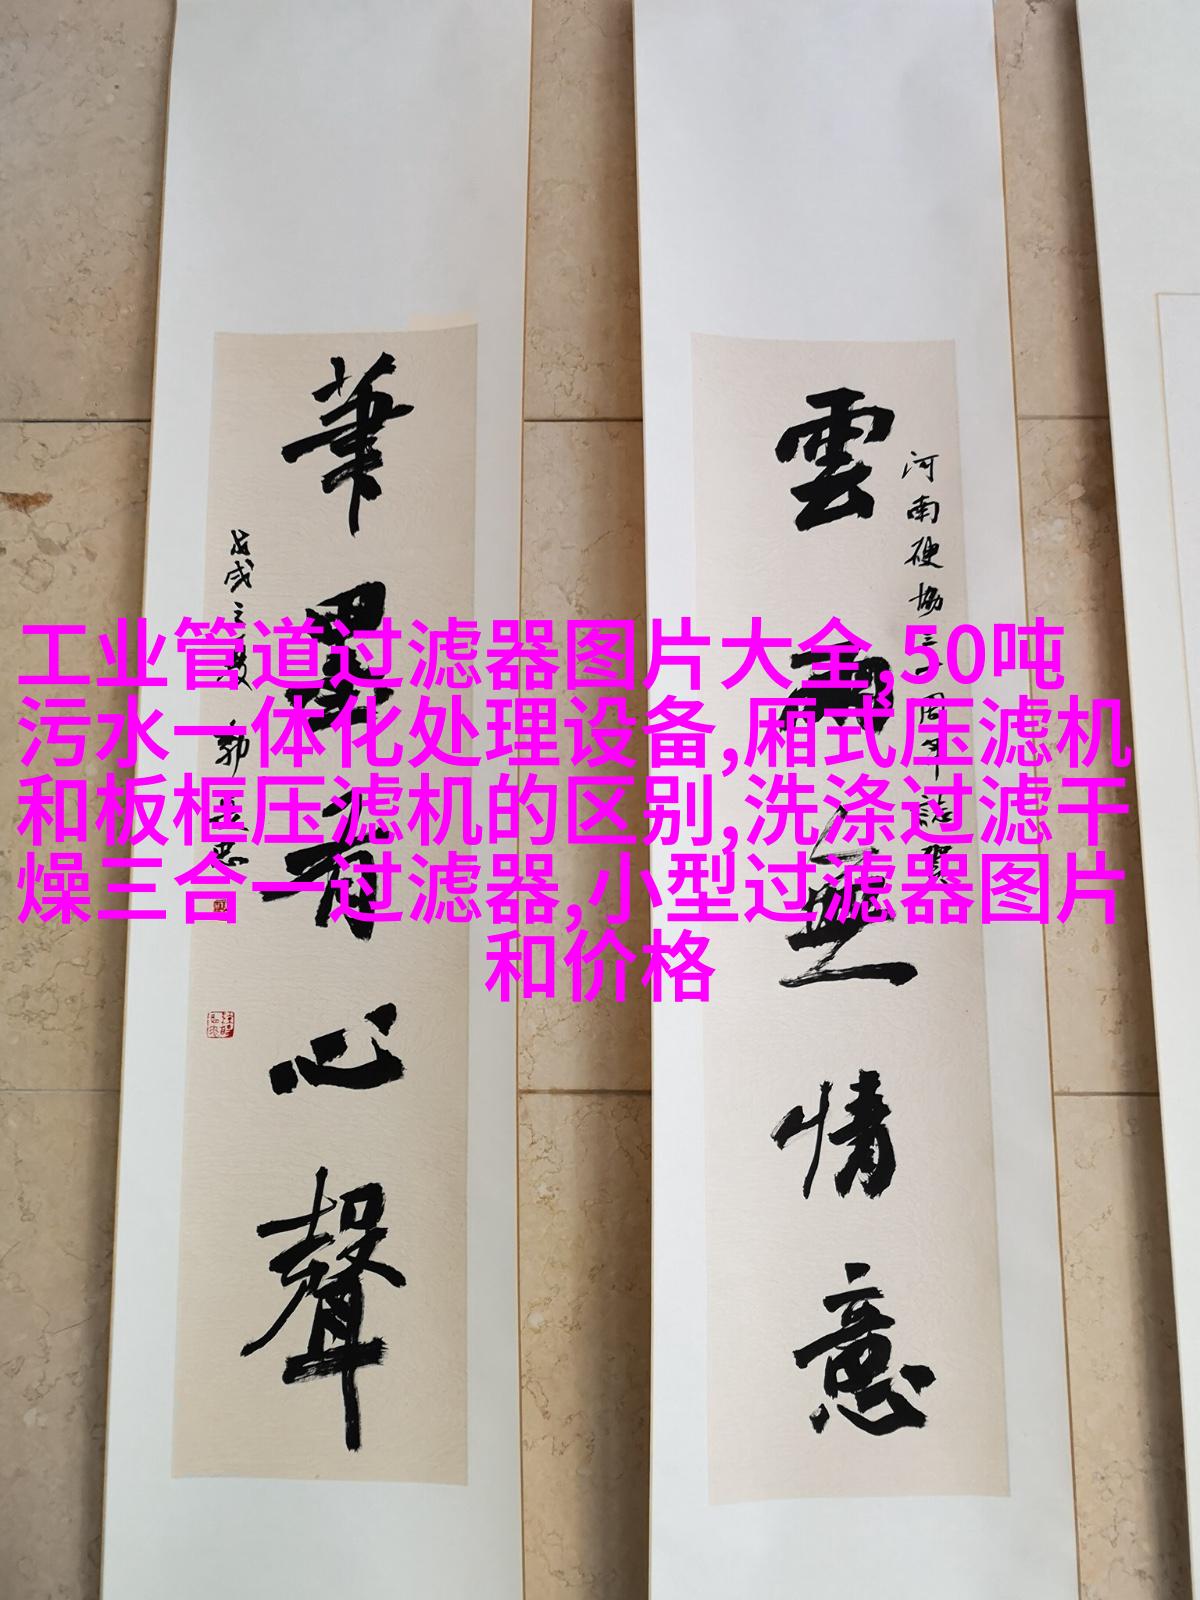 工业管道过滤器图片大全,50吨
污水一体化处理设备,厢式压滤机
和板框压滤机的区别,洗涤过滤干
燥三合一过滤器,小型过滤器图片
和价格
河南硬協三十周年誌賀
雲翔無情意
筆墨有心聲
戊戌之秋